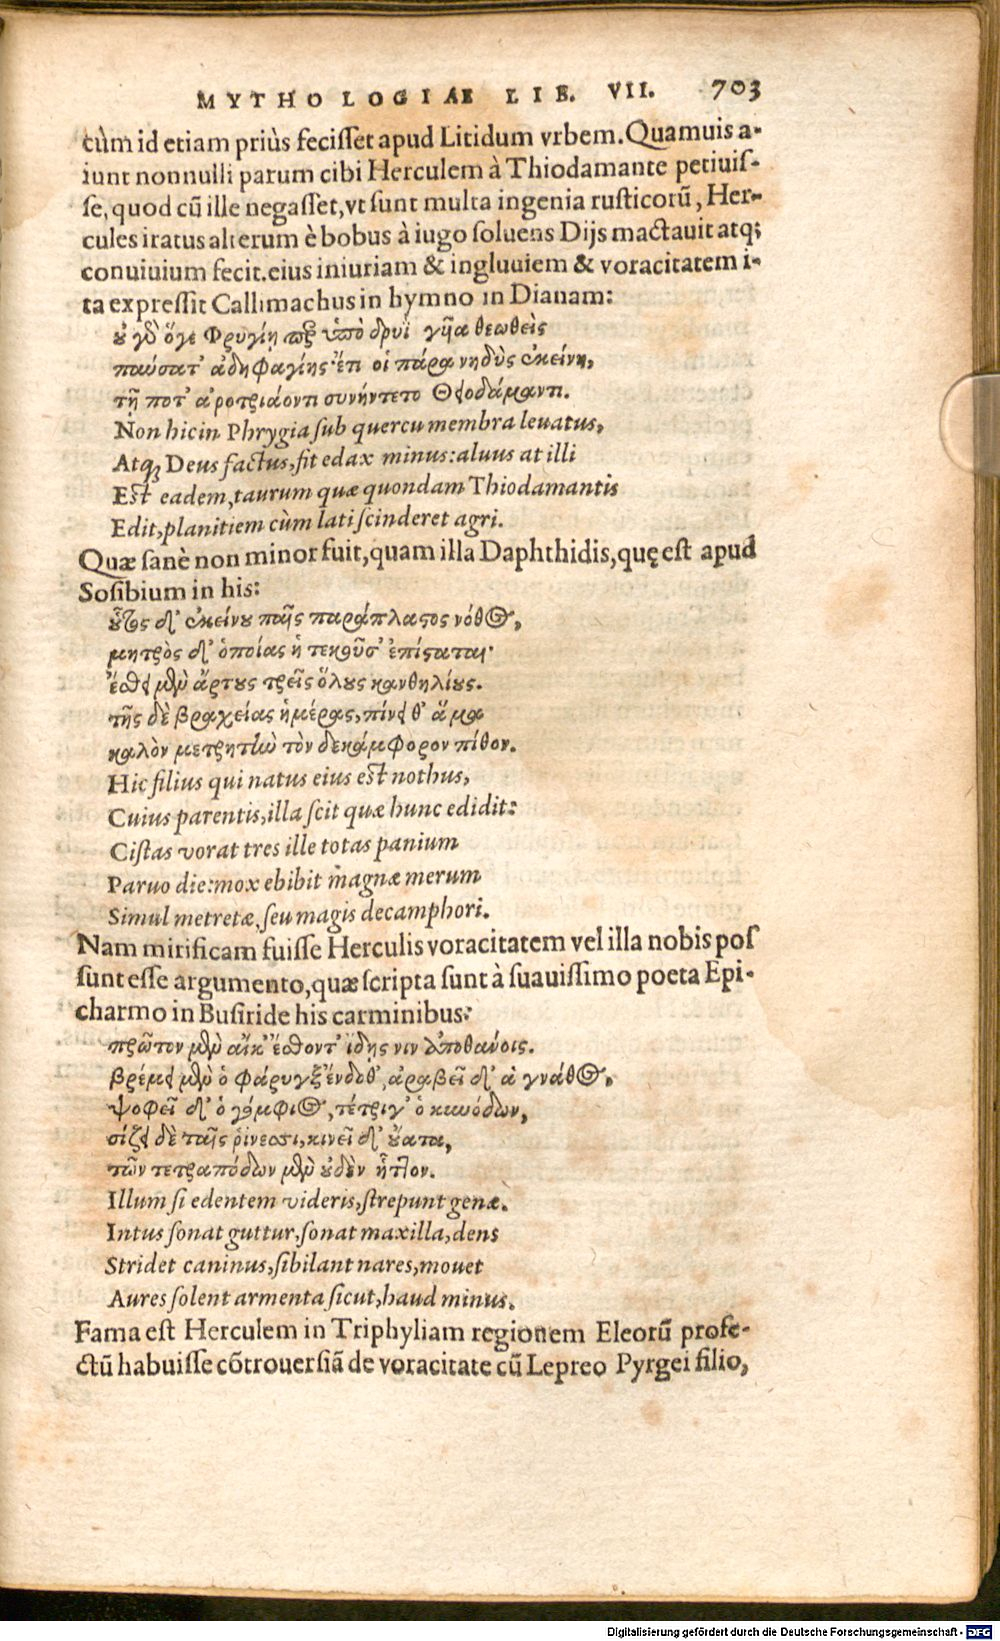 MYTHOLOGIÆ LIB. VII. 703
cùm id etiam priùs fecisset apud Litidum vrbem. Quamuis a-
iunt nonnulli parum cibi Herculem à Thiodamante petiuis-
se, quod cũ ille negasset, vt sunt multa ingenia rusticorũ, Her-
cules iratus alterum è bobus à iugo soluens Dijs mactauit atq;
conuiuium fecit. eius iniuriam & ingluuiem & voracitatem i-
ta expressit Callimachus in hymno in Dianam:
οὐ γὰρ ὅγε Φρυγίῃ περ ὑπὸ δρυῒ γυῖα θεωθεὶς
παύσατ' ἀδηφαγίης· ἔτι οἱ πάρα νηδὺς ἐκείνη,
τῇ ποτ' ἀροτριάοντι συνήντετο Θειοδάμαντι.
Non hic in Phrygia sub quercu membra leuatus,
Atq; Deus factus, fit edax minus: aluus at illi
Est eadem, taurum quæ quondam Thiodamantis
Edit, planitiem cùm lati scinderet agri.
Quæ sanè non minor fuit, quam illa Daphthidis, quę est apud
Sosibium in his:
οὗτος δ' ἐκείνου παῖς παράπλαστος νόθος,
μητρὸς δ' ὁποίας ἡ τεκοῦσ' ἐπίσταται·
ἔσθει μὲν ἄρτους τρεῖς ὅλους κανθηλίους.
τῆς δὲ βραχείας ἡμέρας, πίνει θ' ἅμα
καλὸν μετρητὴν τὸν δεκάμφορον πίθον.
Hic filius qui natus eius est nothus,
Cuius parentis, illa scit quæ hunc edidit:
Cistas vorat tres ille totas panium
Paruo die: mox ebibit magnæ merum
Simul metretæ, seu magis decamphori.
Nam mirificam fuisse Herculis voracitatem vel illa nobis pos
sunt esse argumento, quæ scripta sunt à suauissimo poeta Epi-
charmo in Busiride his carminibus:
πρῶτον μὲν αἴκ' ἔσθοντ' ἴδῃς νιν ἀποθάνοις.
βρέμει μὲν ὁ φάρυγξ ἔνδοθ', ἀραβεῖ δ' ἁ γνάθος,
ψοφεῖ δ' ὁ γόμφιος, τέτριγ' ὁ κυνόδων,
σίζει δὲ ταῖς ῥίνεσσι, κινεῖ δ' οὔατα,
τῶν τετραπόδων μὲν οὐδὲν ἧττον.
Illum si edentem videris, strepunt genæ.
Intus sonat guttur, sonat maxilla, dens
Stridet caninus, sibilant nares, mouet
Aures solent armenta sicut, haud minus.
Fama est Herculem in Triphyliam regionem Eleorũ profe-
ctũ habuisse cõtrouersiã de voracitate cũ Lepreo Pyrgei filio,
Digitalisierung gefördert durch die Deutsche Forschungsgemeinschaft - DFG